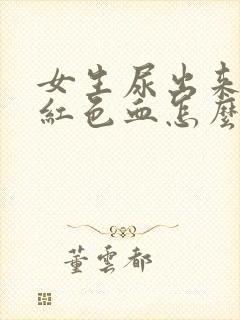 女生尿出来
紅色血怎麼
董雲都